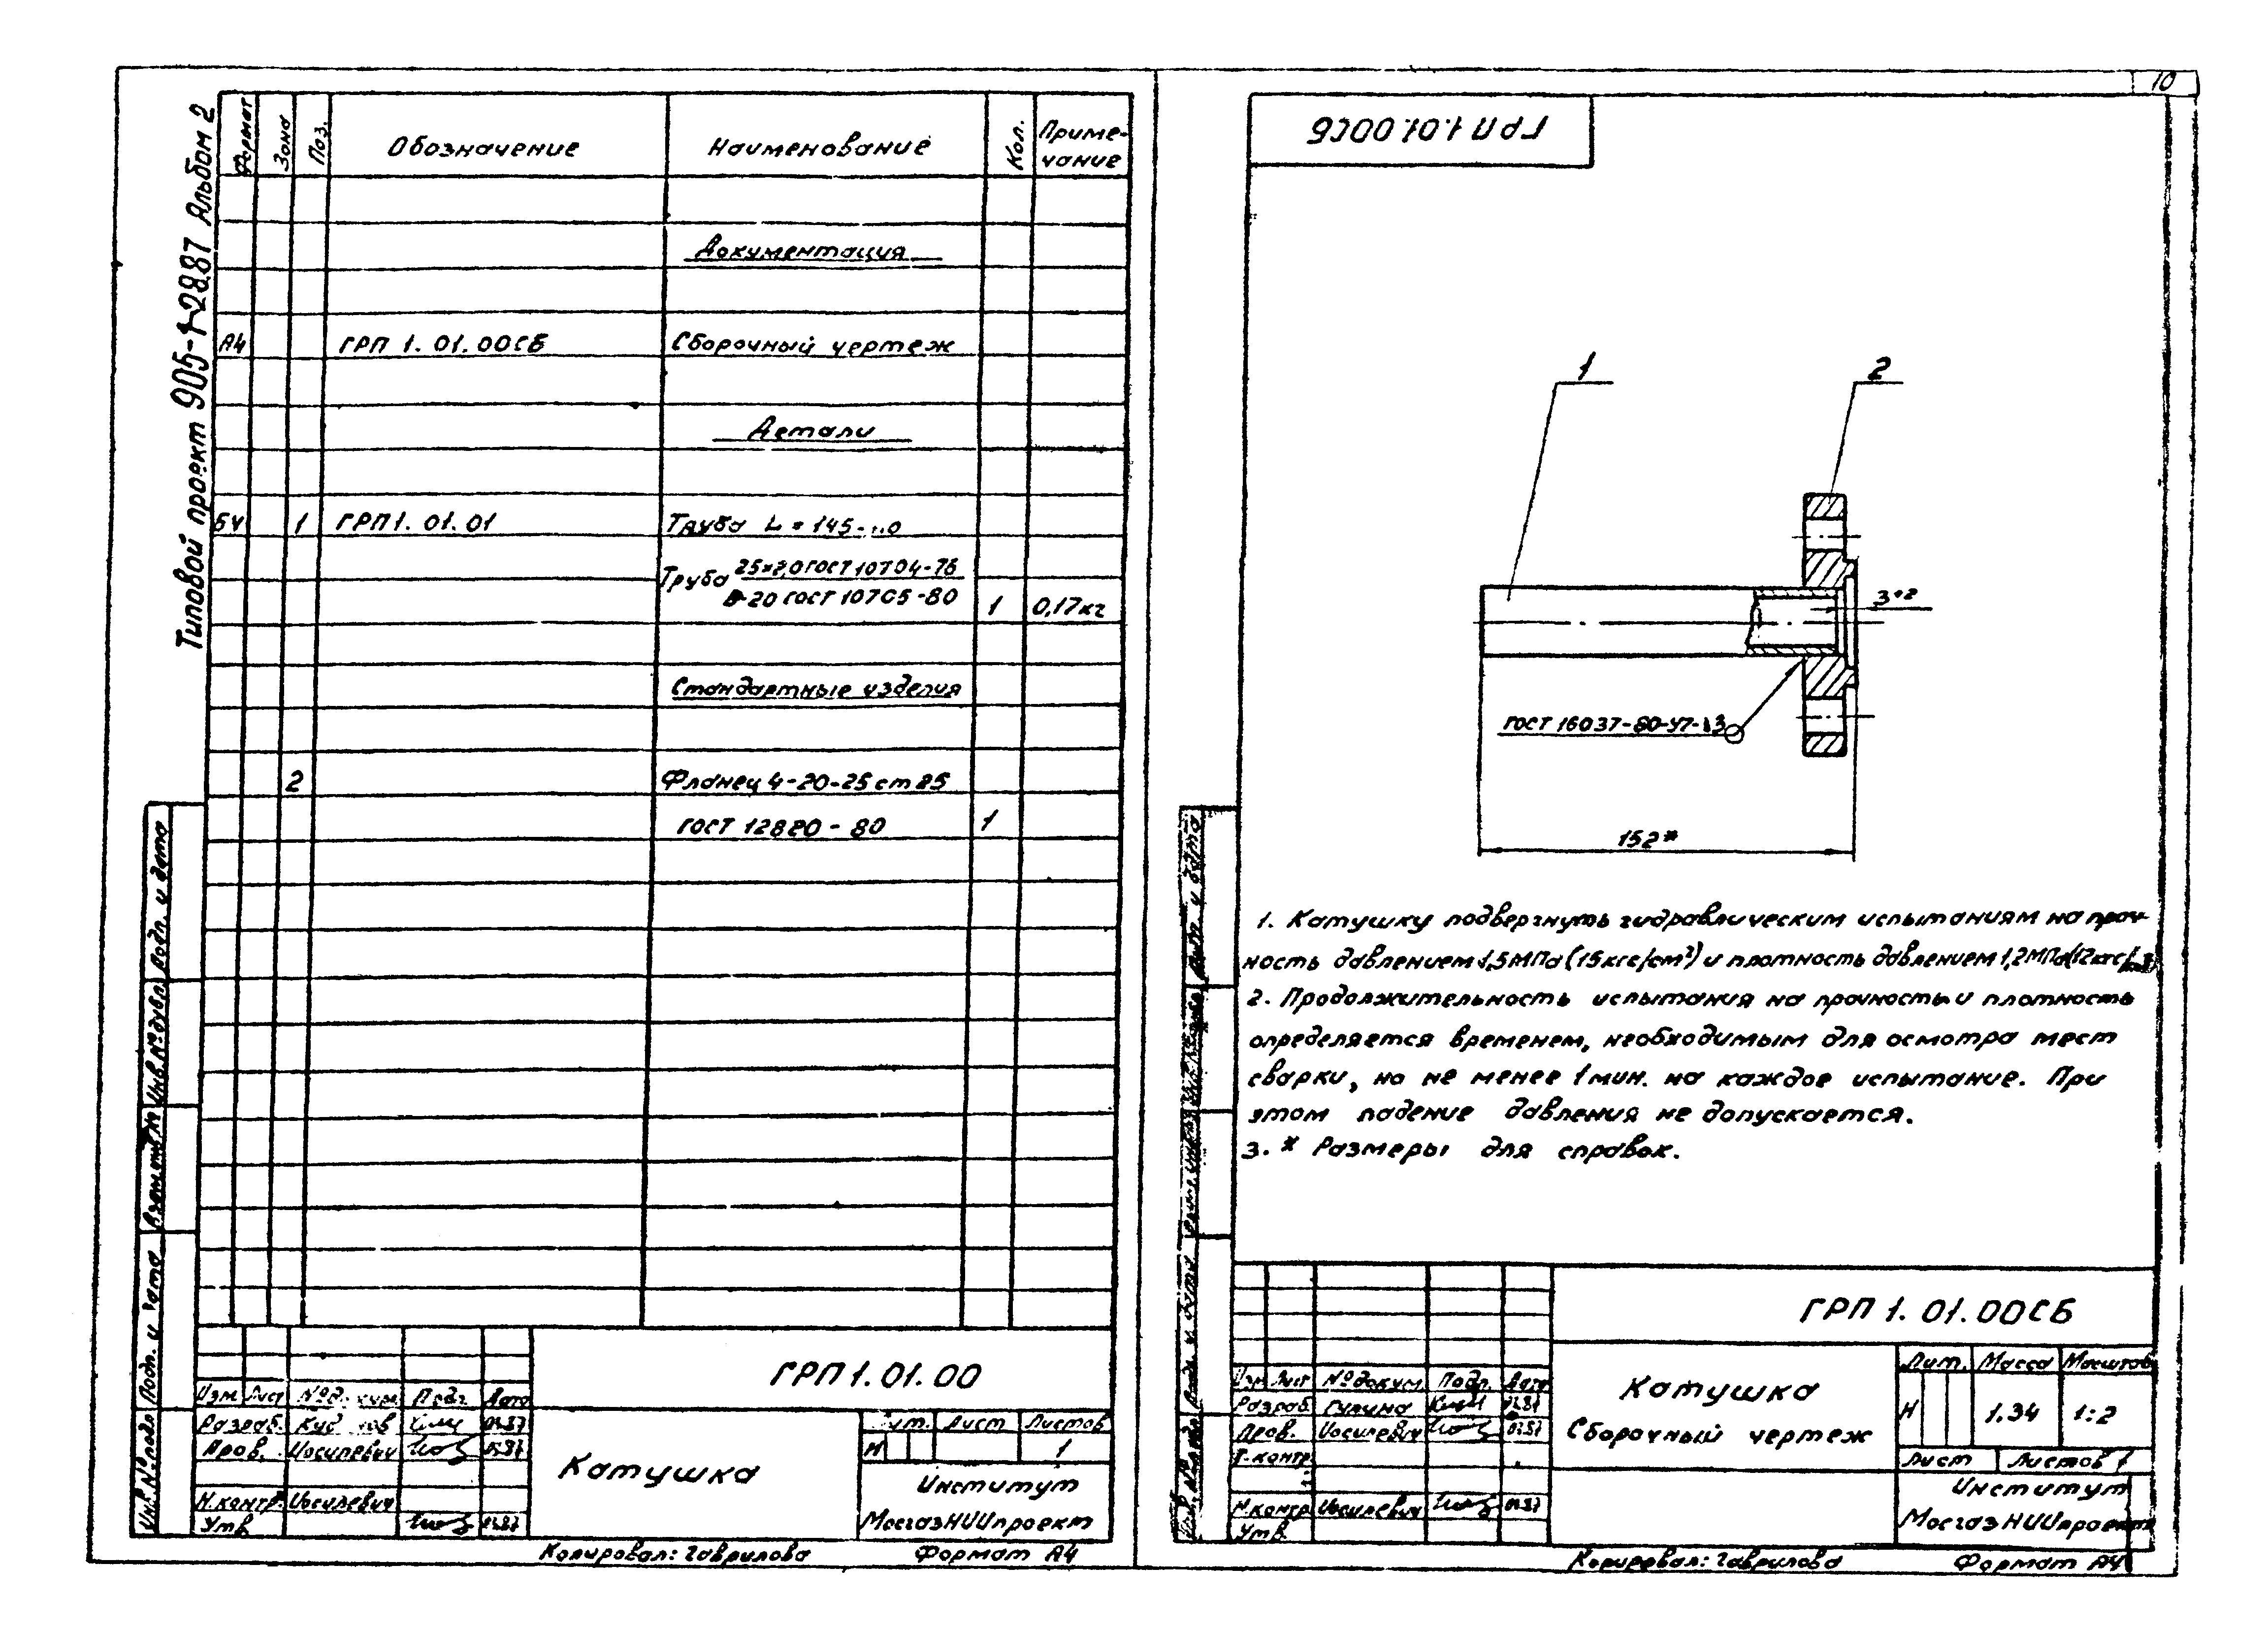 10
Типовой проект 905-1-28.87 Альбом 2
Формат Зона Поз. Обозначение Наименование Кол. Приме-
чание
Документация
А4 ГРП 1. 01. 00СБ Сборочный чертеж
Детали
БЧ 1 ГРП 1. 01. 01 Труба L = 145
Труба 25×2,0 ГОСТ 10704-76
В-20 ГОСТ 10705-80 1 0,17кг
Стандартные изделия
2 Фланец 4-20-25 ст 25
ГОСТ 12820-80 1
Подп. и дата
Инв.№дубл.
Взам.инв.№
Подп. и дата
Инв.№подл
ГРП 1. 01. 00
Изм Лист №докум Подп Дата
Разраб.
Пров. Иосилевич
Н.контр. Иосилевич
Утв
Катушка
Лит. Лист Листов
И 1
Институт
МосгазНИИпроект
Копировал: Гаврилова Формат А4
ГРП 1.01.00СБ
1
2
3+2
ГОСТ 16037-80-У7
152*
1. Катушку подвергнуть гидравлическим испытаниям на проч-
ность давлением 1,5МПа (15кгс/см²) и плотность давлением 1,2МПа(12кгс/см²)
2. Продолжительность испытания на прочность и плотность
определяется временем, необходимым для осмотра мест
сварки, но не менее 1мин. на каждое испытание. При
этом падение давления не допускается.
3. * Размеры для справок.
ГРП 1. 01. 00СБ
Изм Лист №докум. Подп. Дата
Разраб. Гулина
Пров. Иосилевич
Т.контр
Н.контр Иосилевич
Утв.
Катушка
Сборочный чертеж
Лит. Масса Масштаб
И 1.34 1:2
Лист Листов 1
Институт
МосгазНИИпроект
Копировал: Гаврилова Формат А4